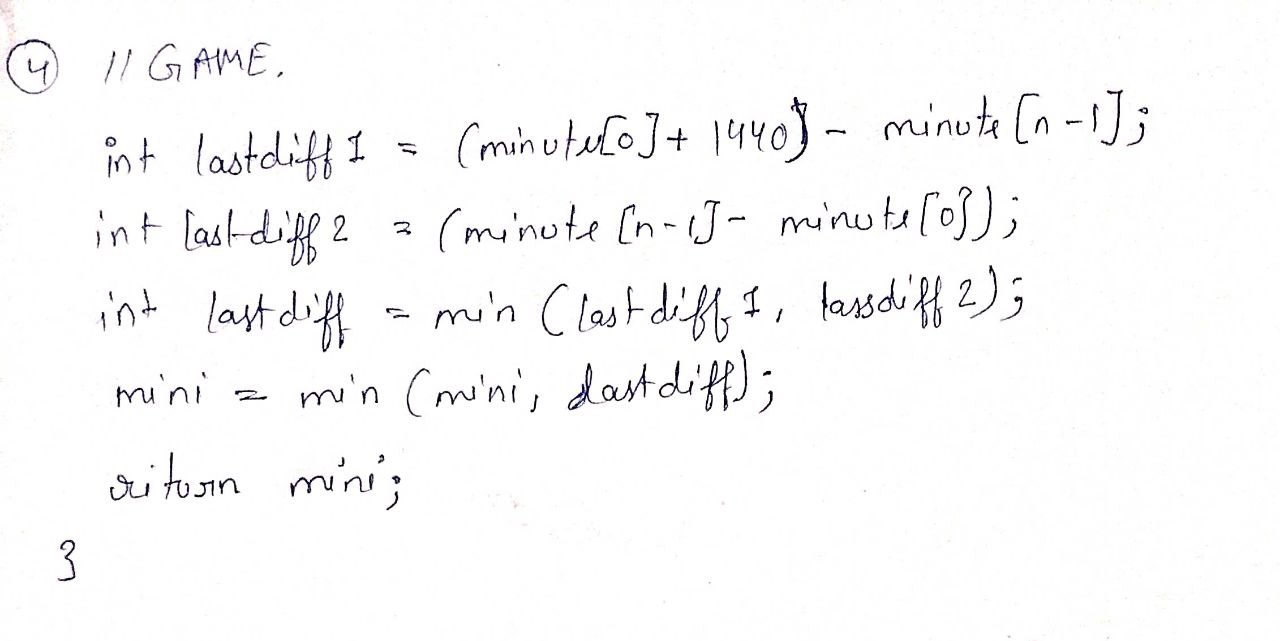 ④ // GAME.
int lastdiff 1 = (minute[0] + 1440) - minute [n-1];
int lastdiff 2 = (minute [n-1] - minute [0]);
int lastdiff = min (lastdiff 1, lassdiff 2);
mini = min (mini, lastdiff);
return mini;
}